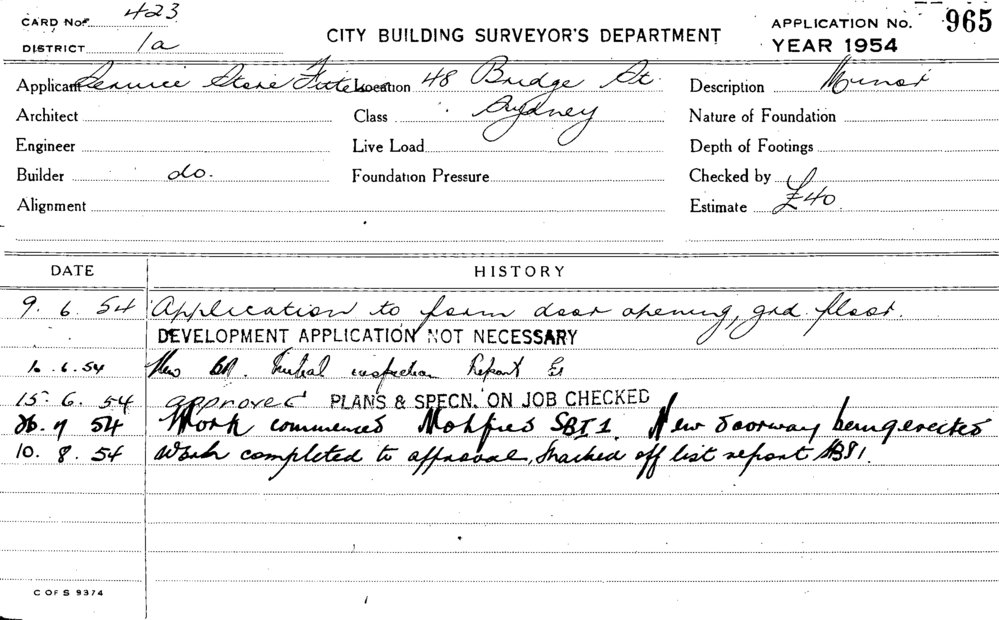 CARD No. 423
DISTRICT 1a
CITY BUILDING SURVEYOR'S DEPARTMENT
APPLICATION No. 965
YEAR 1954
Applicant Service Store Location 48 Bridge St. Description Minor
Architect Class Sydney Nature of Foundation
Engineer Live Load Depth of Footings
Builder do. Foundation Pressure Checked by
Alignment Estimate £40.
DATE HISTORY
9. 6. 54 Application to form door opening, grd. floor.
DEVELOPMENT APPLICATION NOT NECESSARY
6. 54 Initial inspection Report
15. 6. 54 approved PLANS & SPECN. ON JOB CHECKED
54 Work commenced New doorway being erected
10. 8. 54 Work completed to approval, marked off list report
C OF S 9374